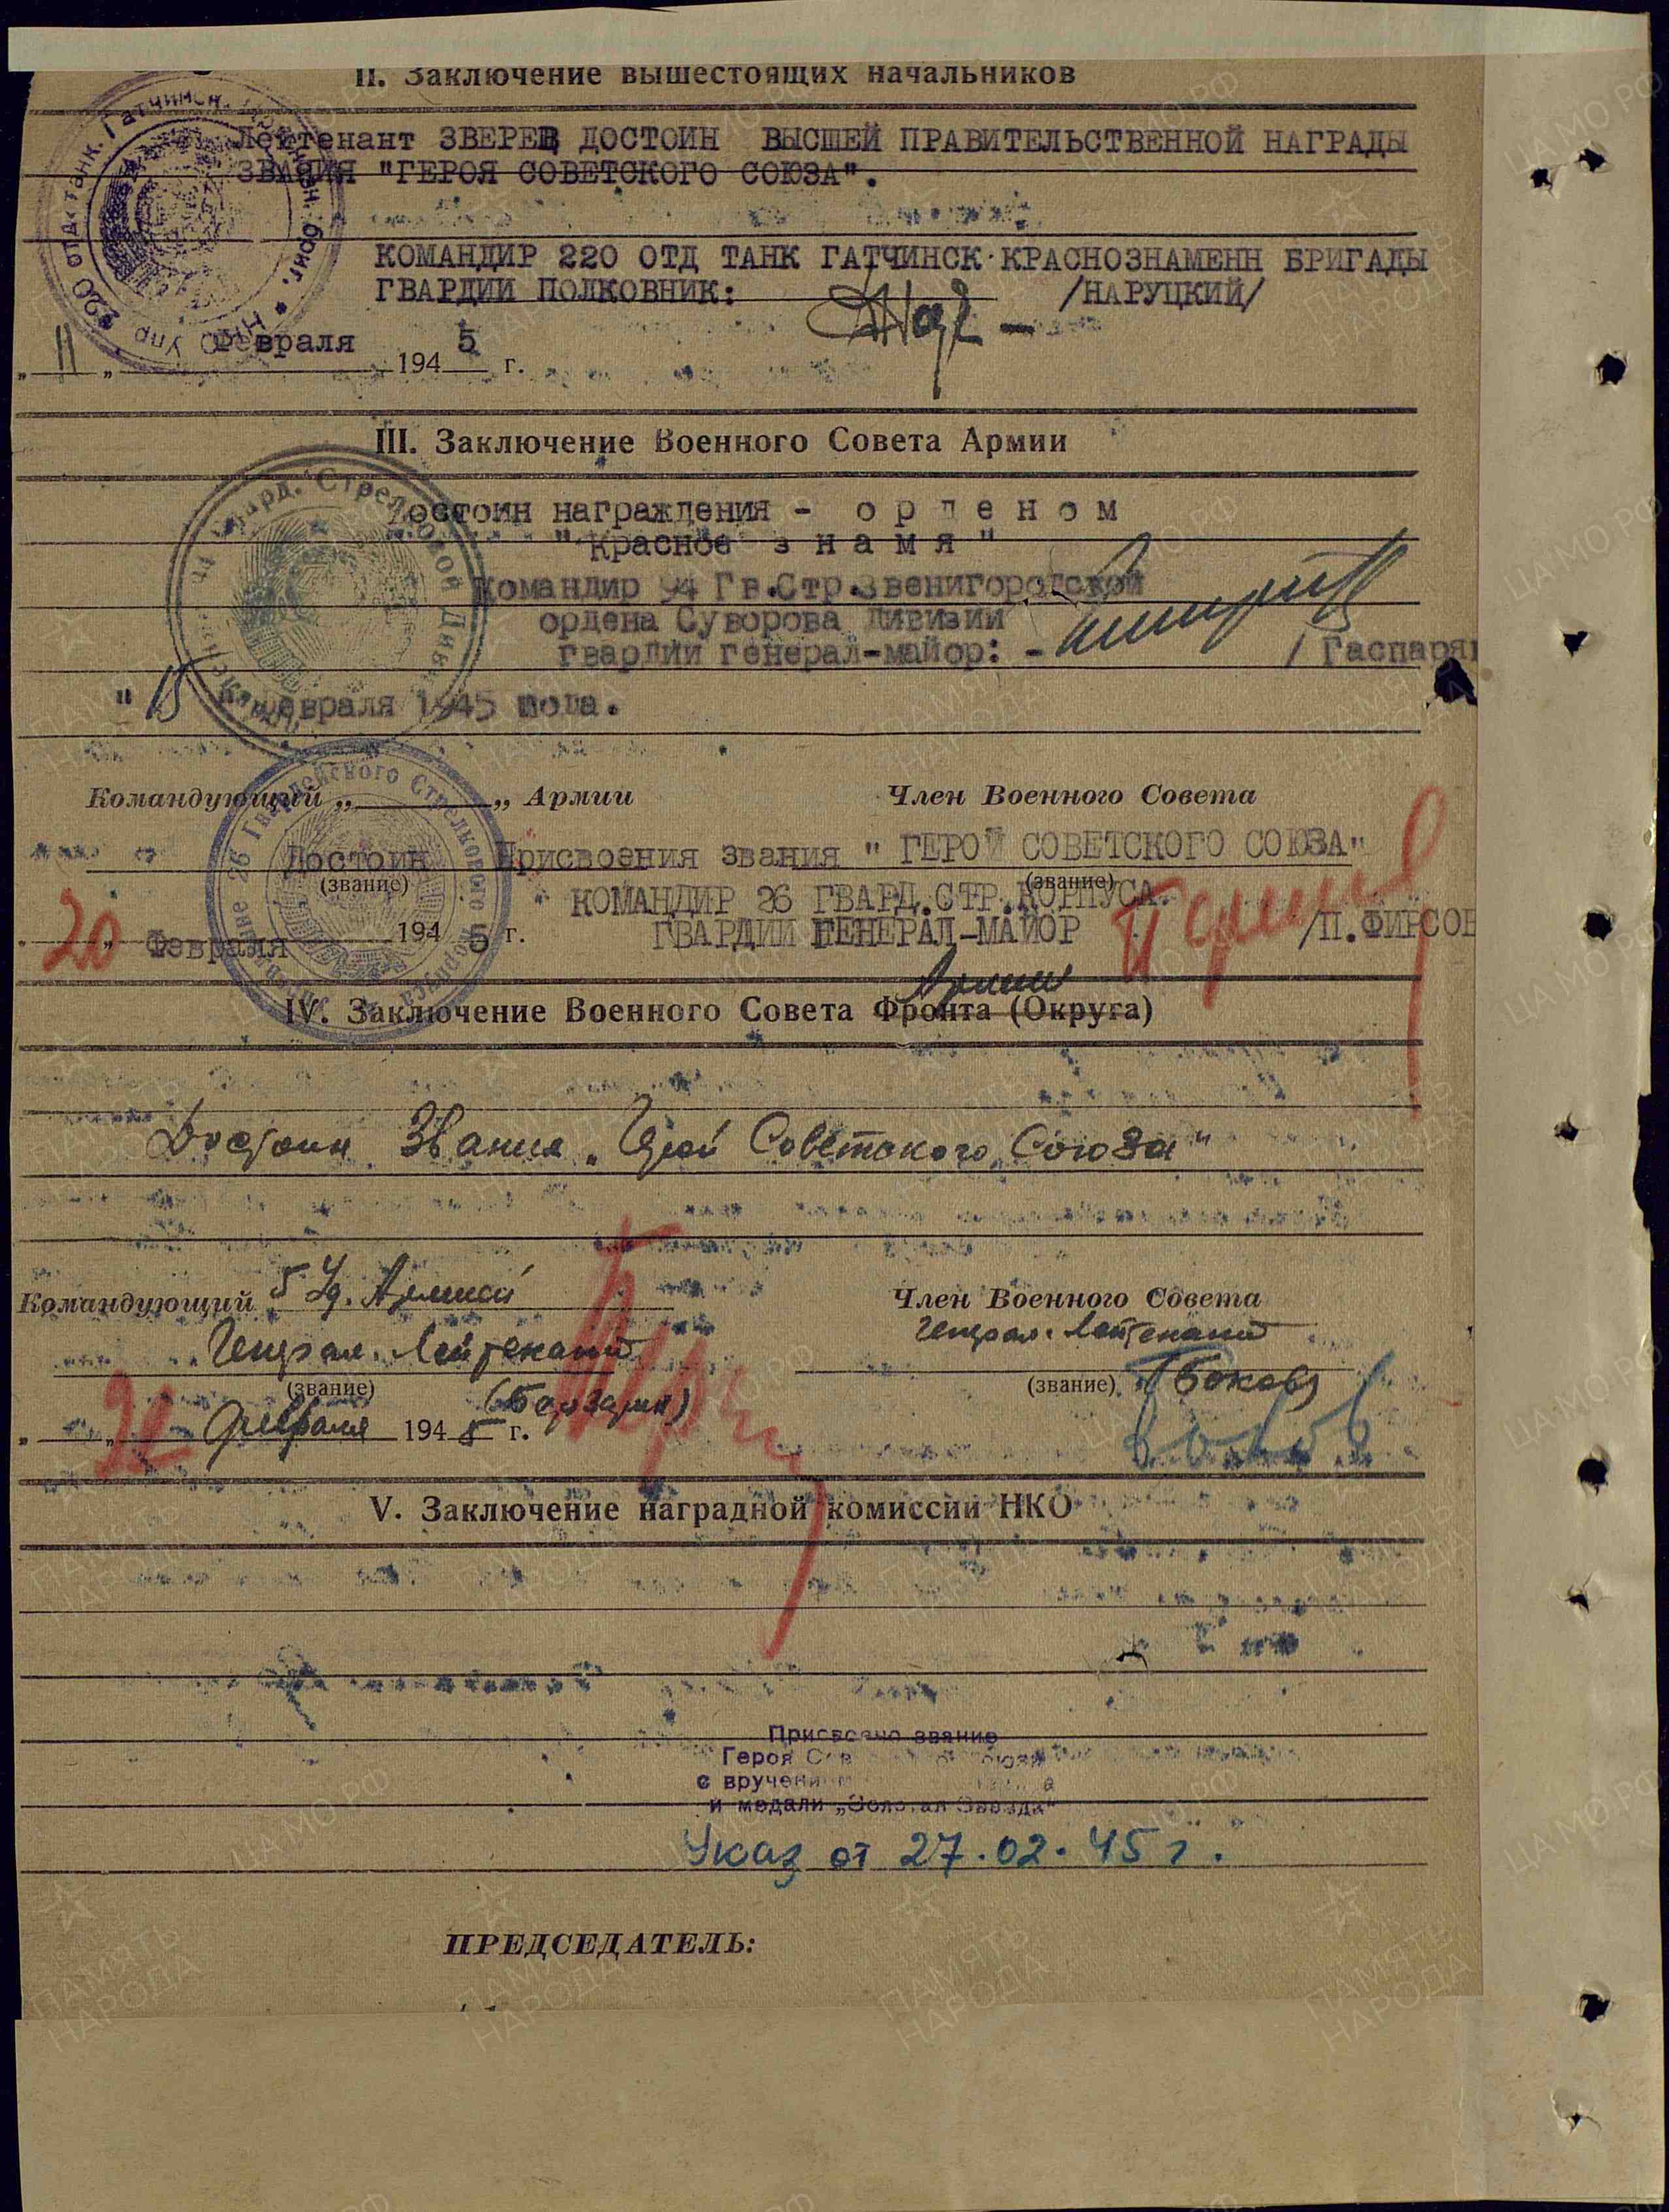 II. Заключение вышестоящих начальников
Лейтенант ЗВЕРЕВ ДОСТОИН ВЫСШЕЙ ПРАВИТЕЛЬСТВЕННОЙ НАГРАДЫ
ЗВАНИЯ "ГЕРОЯ СОВЕТСКОГО СОЮЗА".
КОМАНДИР 220 ОТД ТАНК ГАТЧИНСК КРАСНОЗНАМЕНН БРИГАДЫ
ГВАРДИИ ПОЛКОВНИК: /НАРУЦКИЙ/
„ 11 „ Февраля 1945 г.
III. Заключение Военного Совета Армии
Достоин награждения - орденом
"Красное знамя"
Командир 94 Гв.Стр.Звенигородской
ордена Суворова Дивизии
гвардии генерал-майор: - / Гаспаря
" 15 " февраля 1945 года.
Командующий „ „ Армии Член Военного Совета
Достоин Присвоения звания " ГЕРОЙ СОВЕТСКОГО СОЮЗА"
(звание) (звание)
КОМАНДИР 26 ГВАРД.СТР.КОРПУСА.
ГВАРДИИ ГЕНЕРАЛ-МАЙОР /П.ФИРСОВ
„ 20 „ Февраля 1945 г.
Армии
IV. Заключение Военного Совета Фронта (Округа)
Достоин Звания „Герой Советского Союза"
Командующий 5 Уд. Армией Член Военного Совета
Генерал-Лейтенант Генерал-Лейтенант
(звание) (Берзарин) (звание) Боков
Февраля 1945 г.
V. Заключение наградной комиссии НКО
Присвоено звание
Героя
с вручени
и медали „Золотая Звезда"
Указ от 27.02.45 г.
ПРЕДСЕДАТЕЛЬ: